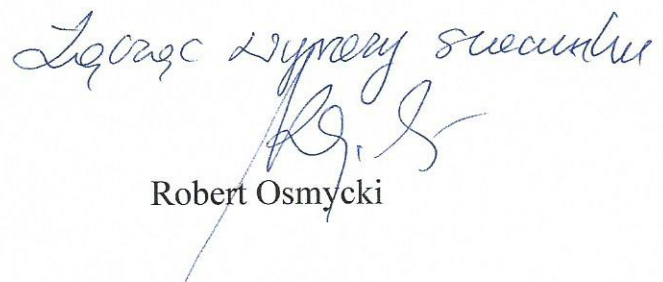 Łącząc wyrazy szacunku
Robert Osmycki